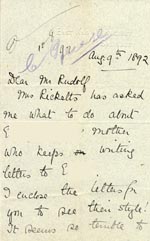 Aug 9th 1892
Dear Mr Rudolf
Mrs Ricketts has asked
me what to do about
E mother
who keeps writing
letters to E
I enclose the letters for
you to see their style!
It seems so terrible to